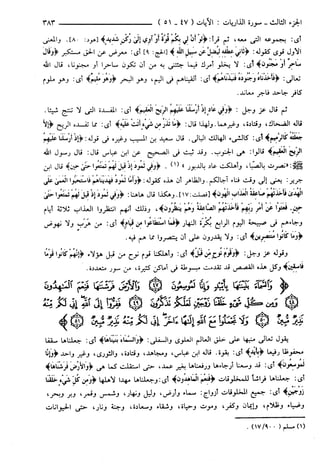 الجزء الثالث - سورة الذاريات: الآيات (٤٧ - ٥١) ٣٨٣
أي: بجموعه التي معه، ثم قرأ: ﴿لو أن لي بكم قوة أو آوي إلى ركن شديد﴾ [هود: ٨٠]. والمعنى
الأول قوي كقوله: ﴿ثاني عطفه ليضل عن سبيل الله﴾ [الحج: ٩] أي: معرض عن الحق مستكبر ﴿وقال
ساحر أو مجنون﴾ أي: لا يخلو أمرك فيما جئتني به من أن تكون ساحرا أو مجنونا، قال الله
تعالى: ﴿فأخذناه وجنوده فنبذناهم﴾ أي: ألقيناهم في اليم، وهو البحر ﴿وهو مليم﴾ أي: وهو ملوم
كافر جاحد فاجر معاند.
ثم قال عز وجل: ﴿وفي عاد إذ أرسلنا عليهم الريح العقيم﴾ أي: المفسدة التي لا تنتج شيئا،
قاله الضحاك، وقتادة، وغيرهما. ولهذا قال: ﴿ما تذر من شيء أتت عليه﴾ أي: مما تفسده الريح ﴿إلا
جعلته كالرميم﴾ أي: كالشيء الهالك البالي. قال سعيد بن المسيب وغيره في قوله: ﴿إذ أرسلنا عليهم
الريح العقيم﴾ قالوا: هي الجنوب. وقد ثبت في الصحيح عن ابن عباس قال: قال رسول الله
«نصرت بالصبا، وأهلكت عاد بالدبور» (١) ﴿وفي ثمود إذ قيل لهم تمتعوا حتى حين﴾ قال ابن
جرير: يعني إلى وقت فناء آجالكم. والظاهر أن هذه كقوله: ﴿وأما ثمود فهديناهم فاستحبوا العمى على
الهدى فأخذتهم صاعقة العذاب الهون﴾ [فصلت: ١٧]. وهكذا قال هاهنا: ﴿وفي ثمود إذ قيل لهم تمتعوا حتى
حين. فعتوا عن أمر ربهم فأخذتهم الصاعقة وهم ينظرون﴾، وذلك أنهم انتظروا العذاب ثلاثة أيام
وجاءهم في صبيحة اليوم الرابع بكرة النهار ﴿فما استطاعوا من قيام﴾ أي: من هرب ولا نهوض
﴿وما كانوا منتصرين﴾ أي: ولا يقدرون على أن ينتصروا مما هم فيه.
وقوله عز وجل: ﴿وقوم نوح من قبل﴾ أي: وأهلكنا قوم نوح من قبل هؤلاء ﴿إنهم كانوا قوما
فاسقين﴾ وكل هذه القصص قد تقدمت مبسوطة في أماكن كثيرة، من سور متعددة.
والسماء بنيناها بأييد وإنا لموسعون ﴿٤٧﴾ والأرض فرشناها فنعم الماهدون
﴿٤٨﴾ ومن كل شيء خلقنا زوجين لعلكم تذكرون ﴿٤٩﴾ ففروا إلى الله إني لكم منه
نذير مبين ﴿٥٠﴾ ولا تجعلوا مع الله إلها آخر إني لكم منه نذير مبين ﴿٥١﴾
يقول تعالى منبها على خلق العالم العلوي والسفلي: ﴿والسماء بنيناها﴾ أي: جعلناها سقفا
محفوظا رفيعا ﴿بأييد﴾ أي: بقوة. قاله ابن عباس، ومجاهد، وقتادة، والثوري، وغير واحد ﴿وإنا
لموسعون﴾ أي: قد وسعنا أرجاءها ورفعناها بغير عمد، حتى استقلت كما هي ﴿والأرض فرشناها﴾
أي: جعلناها فراشا للمخلوقات ﴿فنعم الماهدون﴾ أي: وجعلناها مهدا لأهلها ﴿ومن كل شيء خلقنا
زوجين﴾ أي: جميع المخلوقات أزواج: سماء وأرض، وليل ونهار، وشمس وقمر، وبر وبحر،
وضياء وظلام، وإيمان وكفر، وموت وحياة، وشقاء وسعادة، وجنة ونار، حتى الحيوانات
(١) مسلم (١٧/٩٠٠).